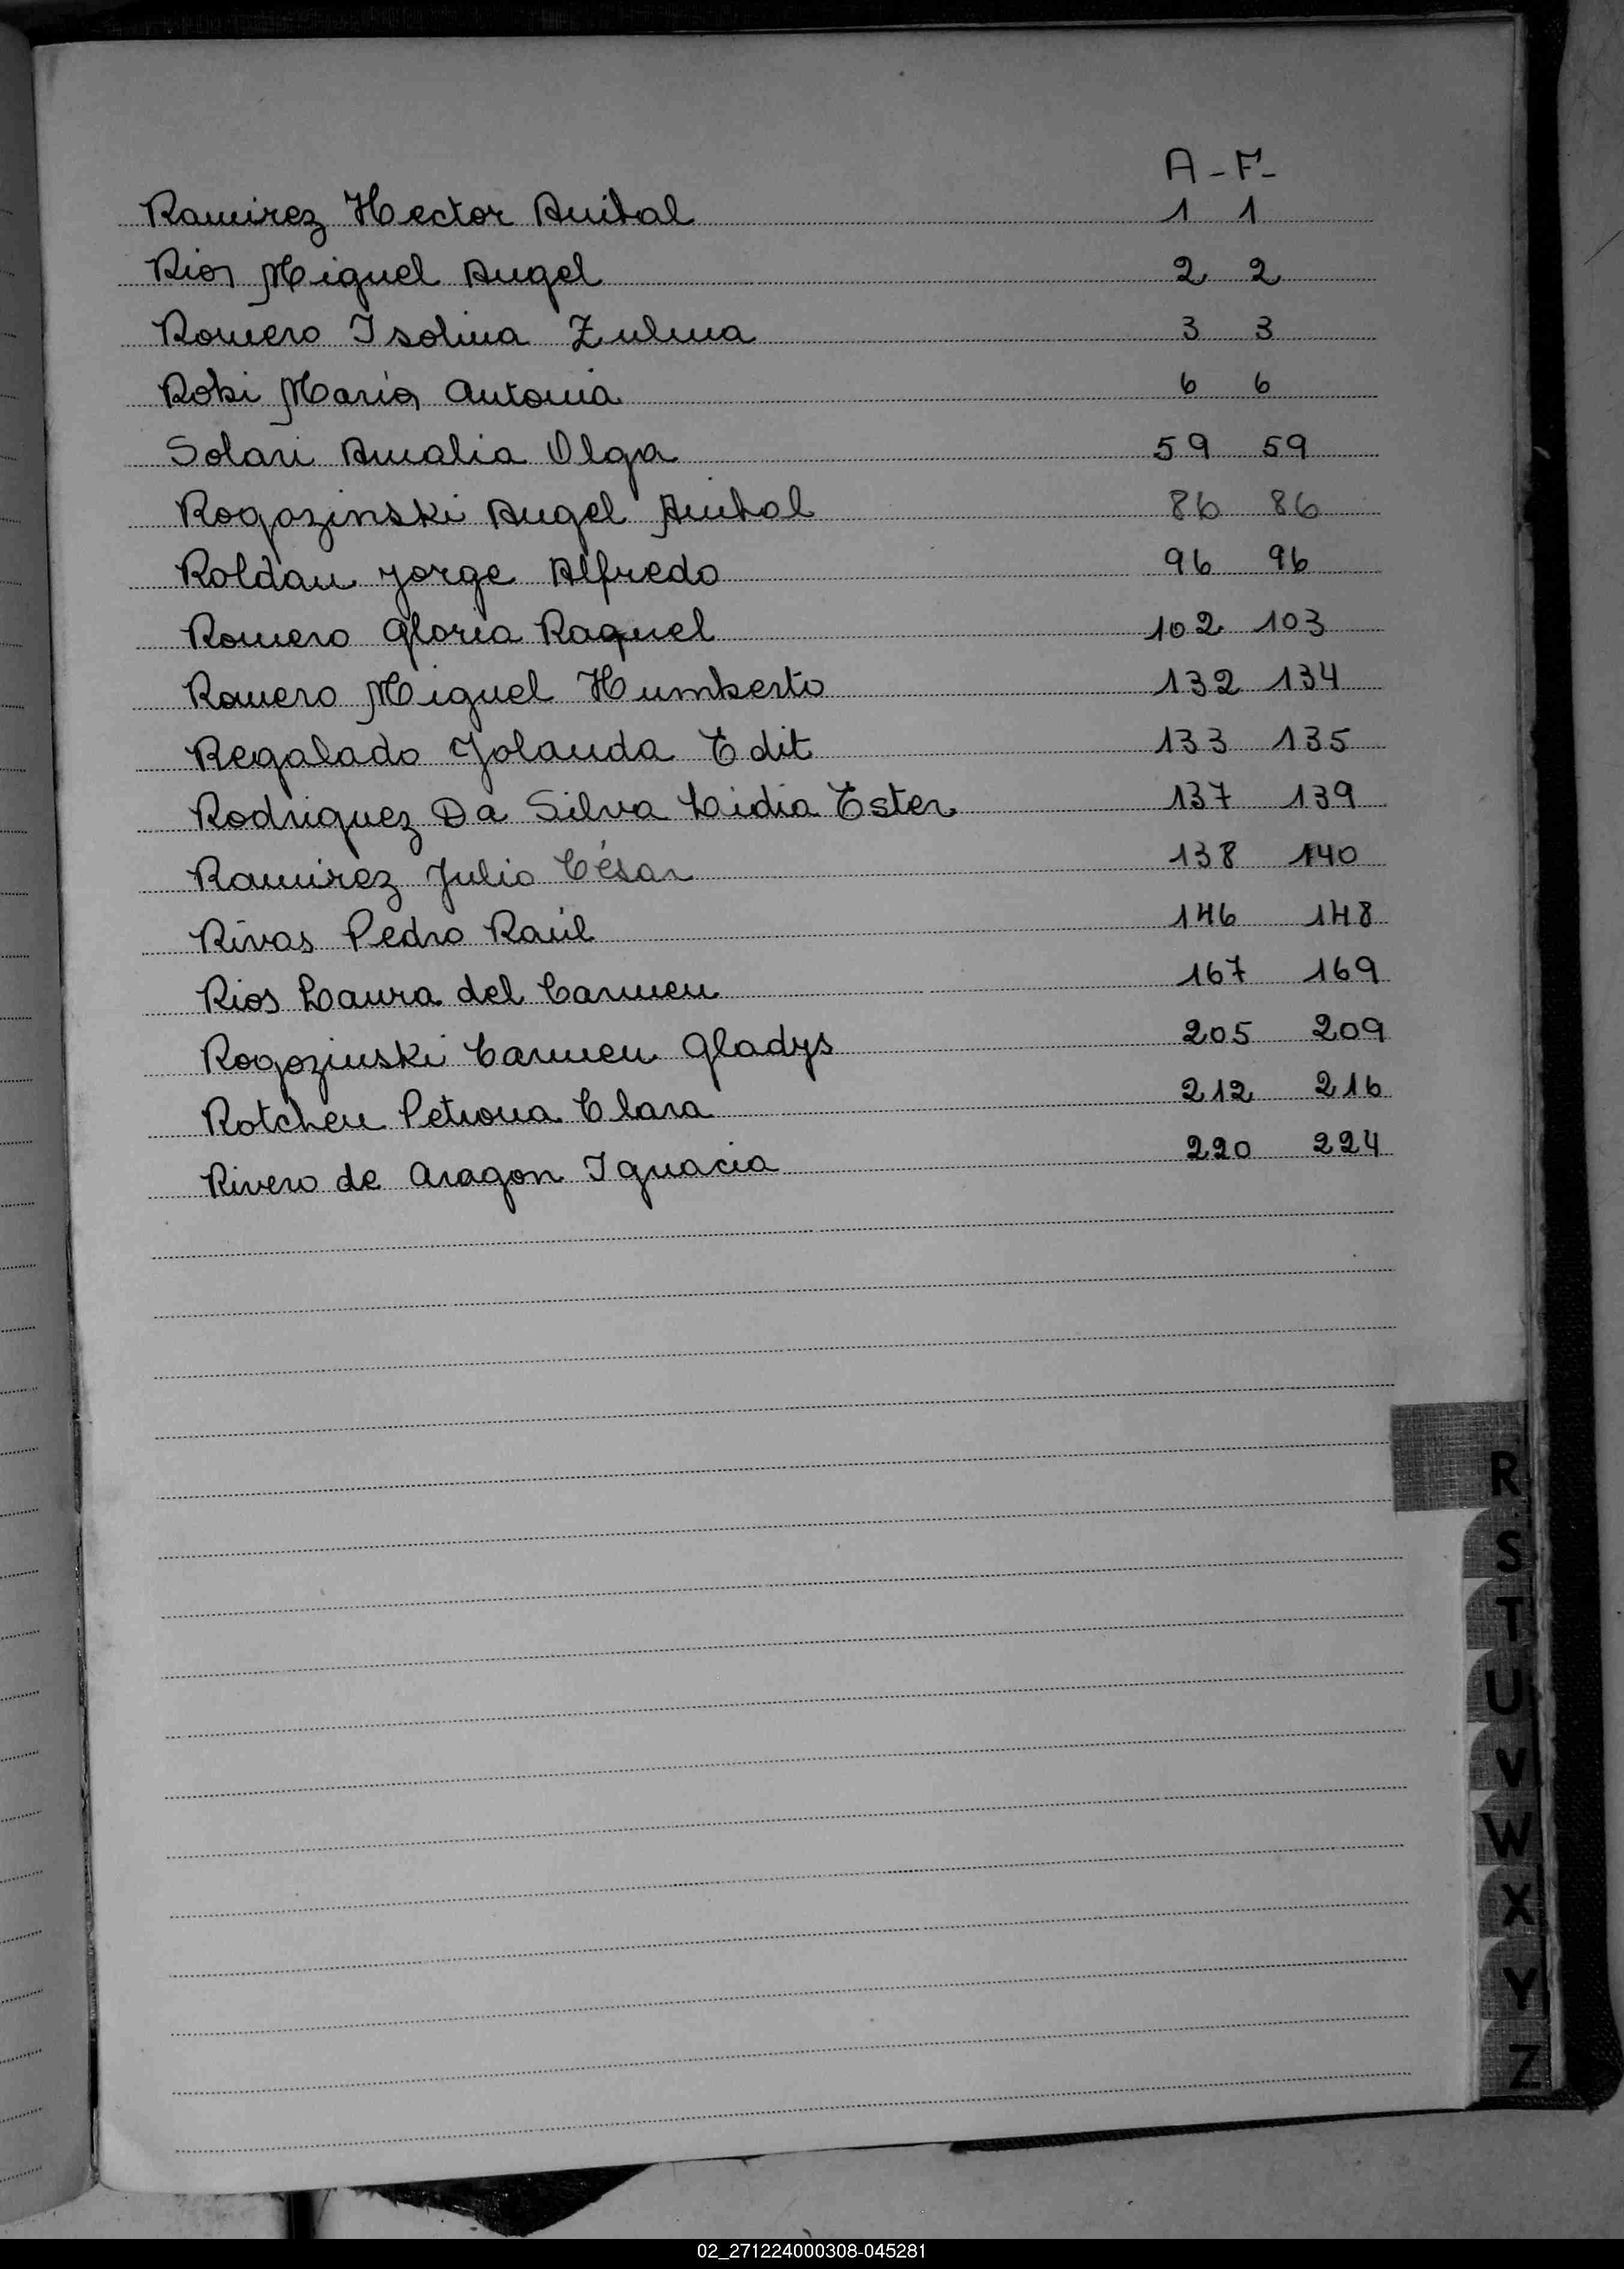 A - F -
Ramirez Hector Anibal 1 1
Rios Miguel Angel 2 2
Romero Isolina Zulma 3 3
Robi Maria Antonia 6 6
Solari Amalia Olga 59 59
Rogozinski Angel Anibal 86 86
Roldan Jorge Alfredo 96 96
Romero Gloria Raquel 102 103
Romero Miguel Humberto 132 134
Regalado Yolanda Edit 133 135
Rodriguez Da Silva Lidia Ester 137 139
Ramirez Julio César 138 140
Rivas Pedro Raúl 146 148
Rios Laura del Carmen 167 169
Rogozinski Carmen Gladys 205 209
Rotchen Petrona Clara 212 216
Rivero de Aragon Ignacia 220 224
R
S
T
U
V
W
X
Y
Z
02_271224000308-045281